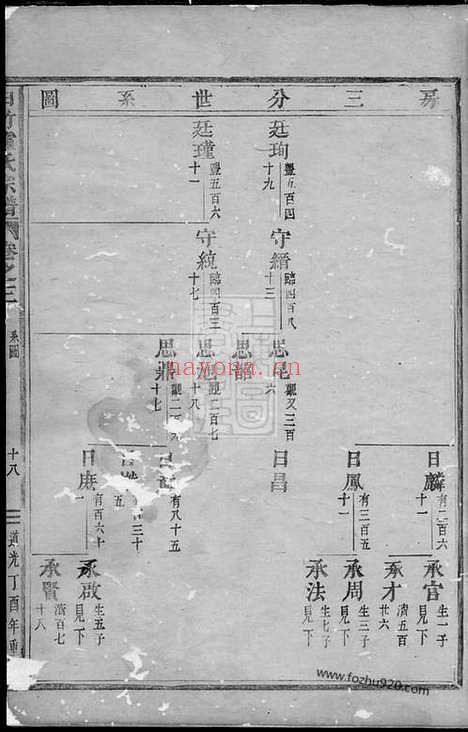 房三分世系圖
廷珣
豐五百四
十九
廷瑾
豐五百六
十一
守縉
臨四百八
十三
守統
臨四百三
十七
思昆
觀又三百
六
思韶
思旭
觀二百七
十八
思鼎
觀二百六
十七
日麟
有二百六
十一
日鳳
有三百五
十一
日昌
有八十五
有三十
五
日庶
有百六十
一
承官
生一子
見下
承才
濟五百
廿六
承周
生三子
見下
承法
生七子
見下
承啟
生五子
見下
承賢
濟百七
十八
氏宗譜
卷之三
系圖
十八
道光丁酉年重
nayona.cn
www.fozhu920.com